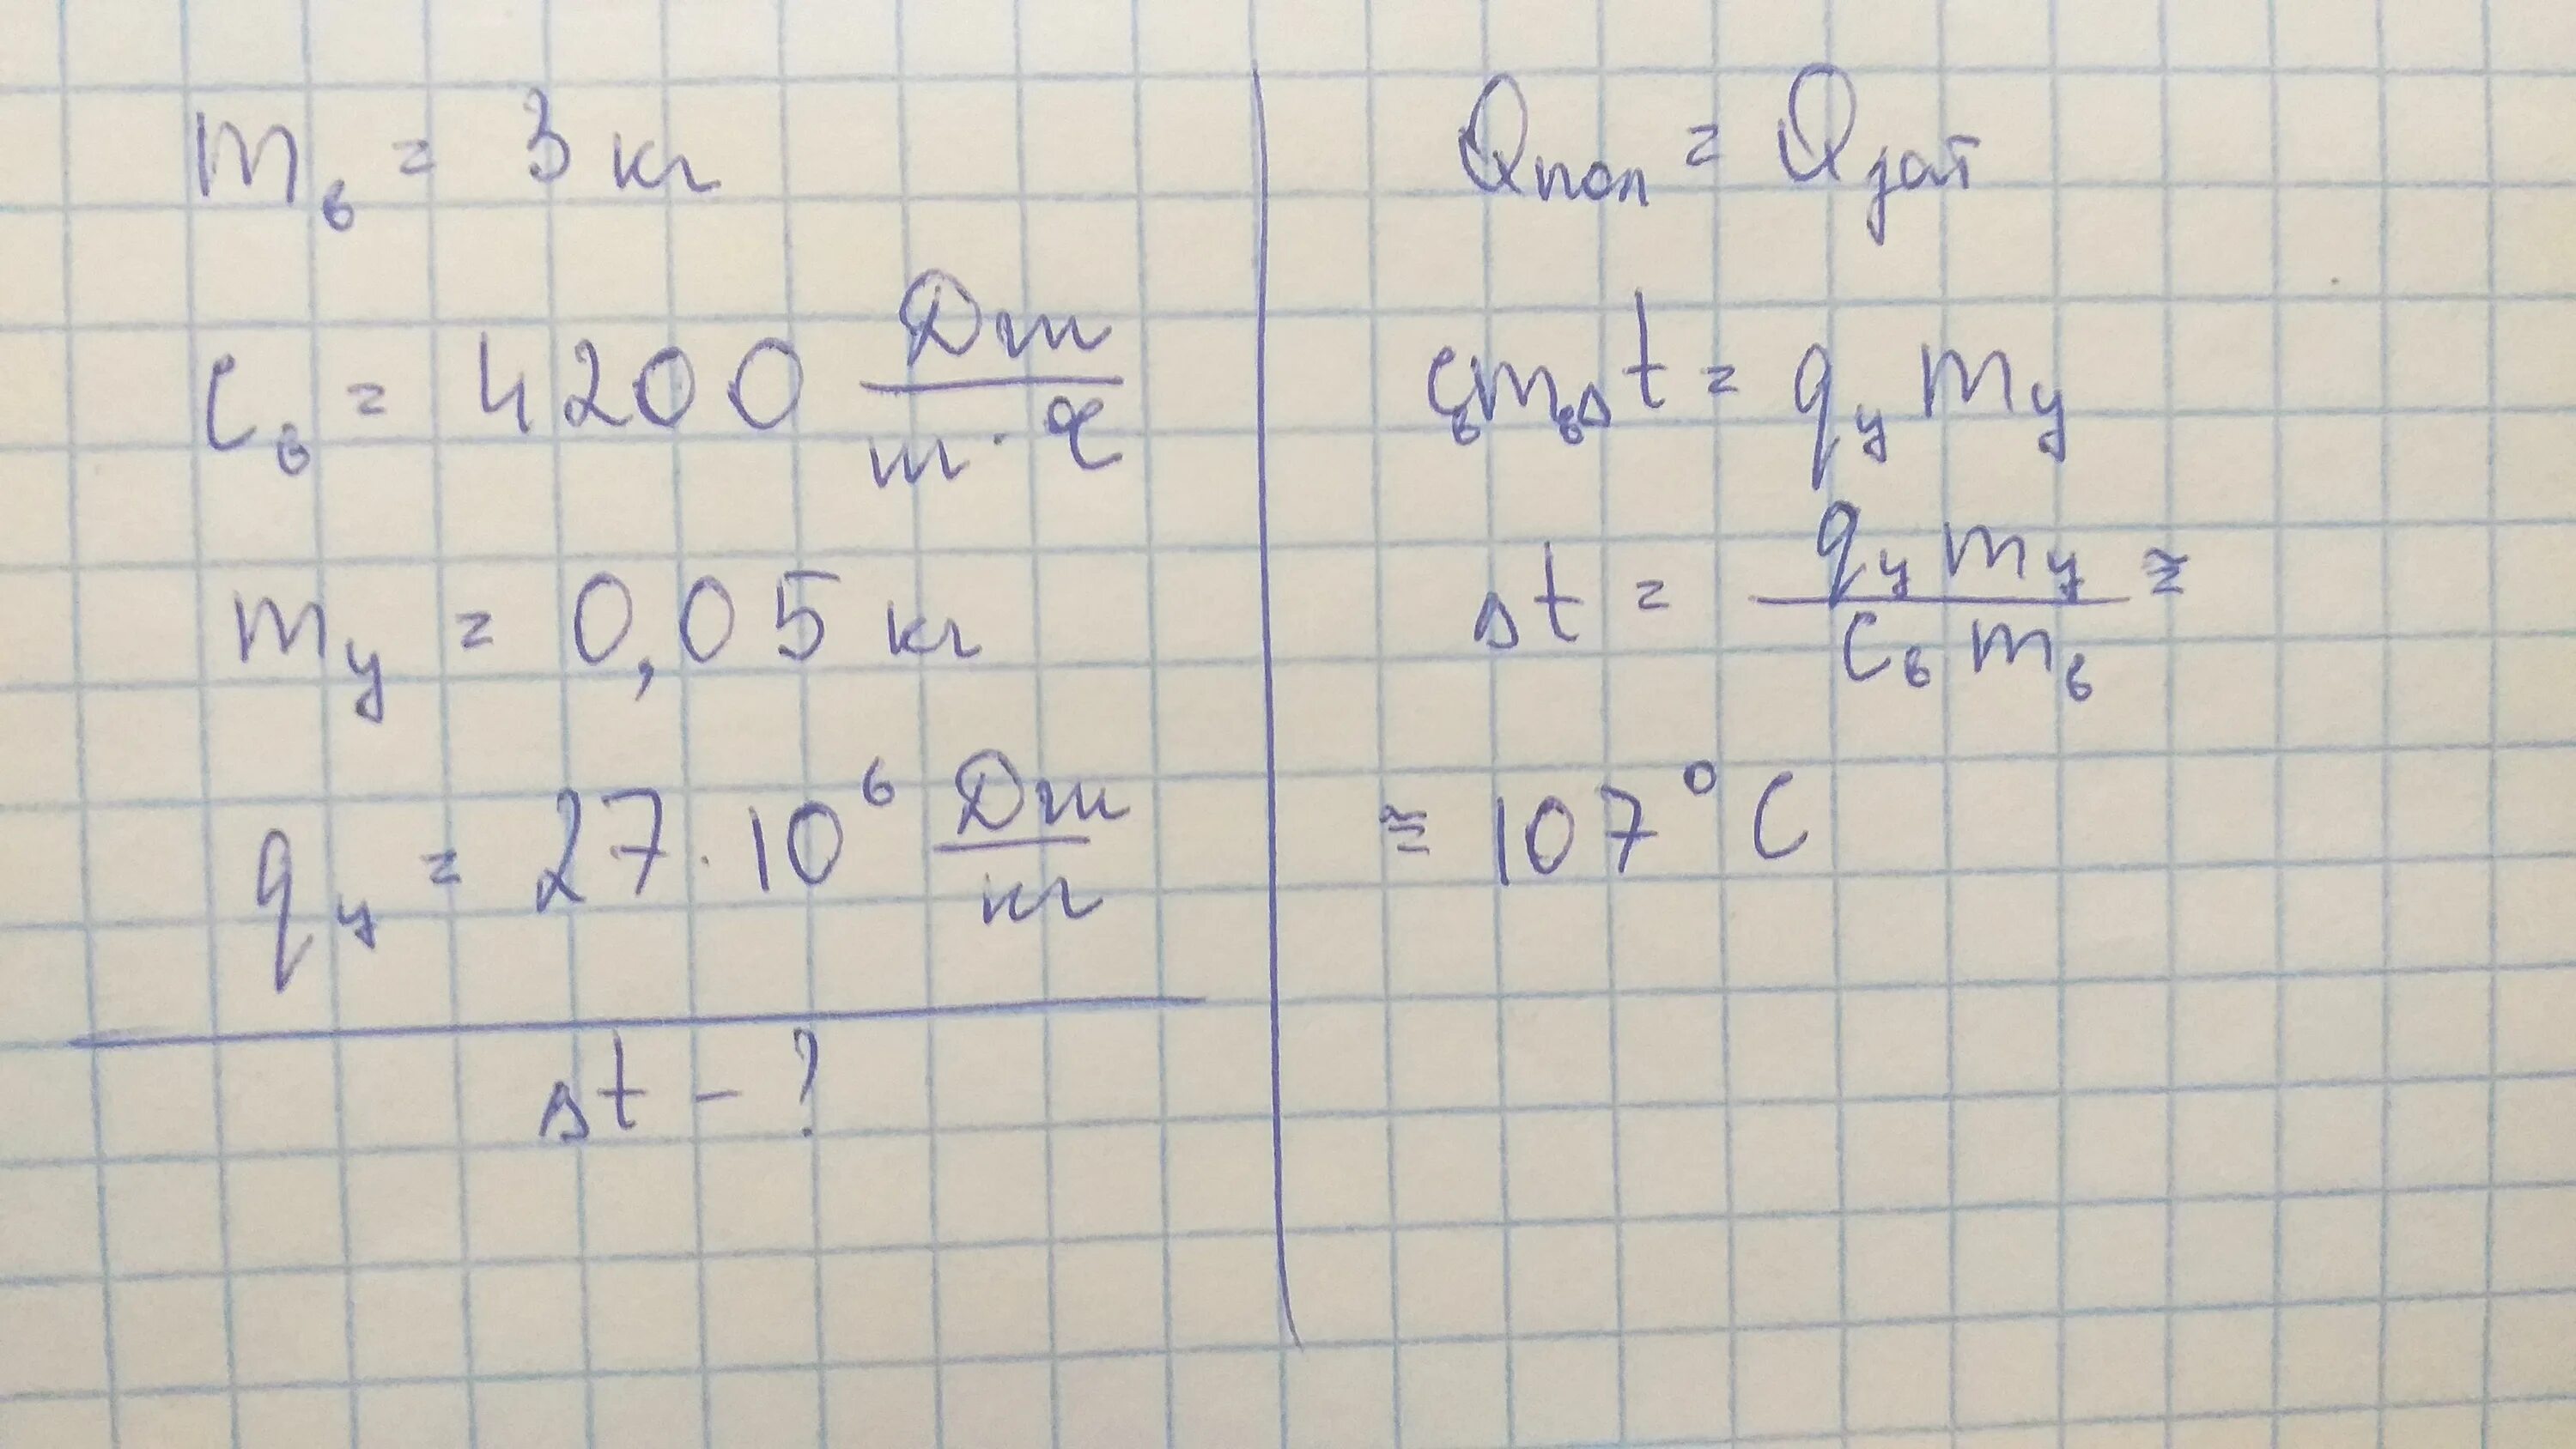 mв = 3 кг
cв = 4200 Дж/кг·°C
mу = 0,05 кг
qу = 27·10⁶ Дж/кг
Δt - ?
Qпол = Qзат
cвmвΔt = qуmу
Δt = qуmу/cвmв ≅
≅ 107°C